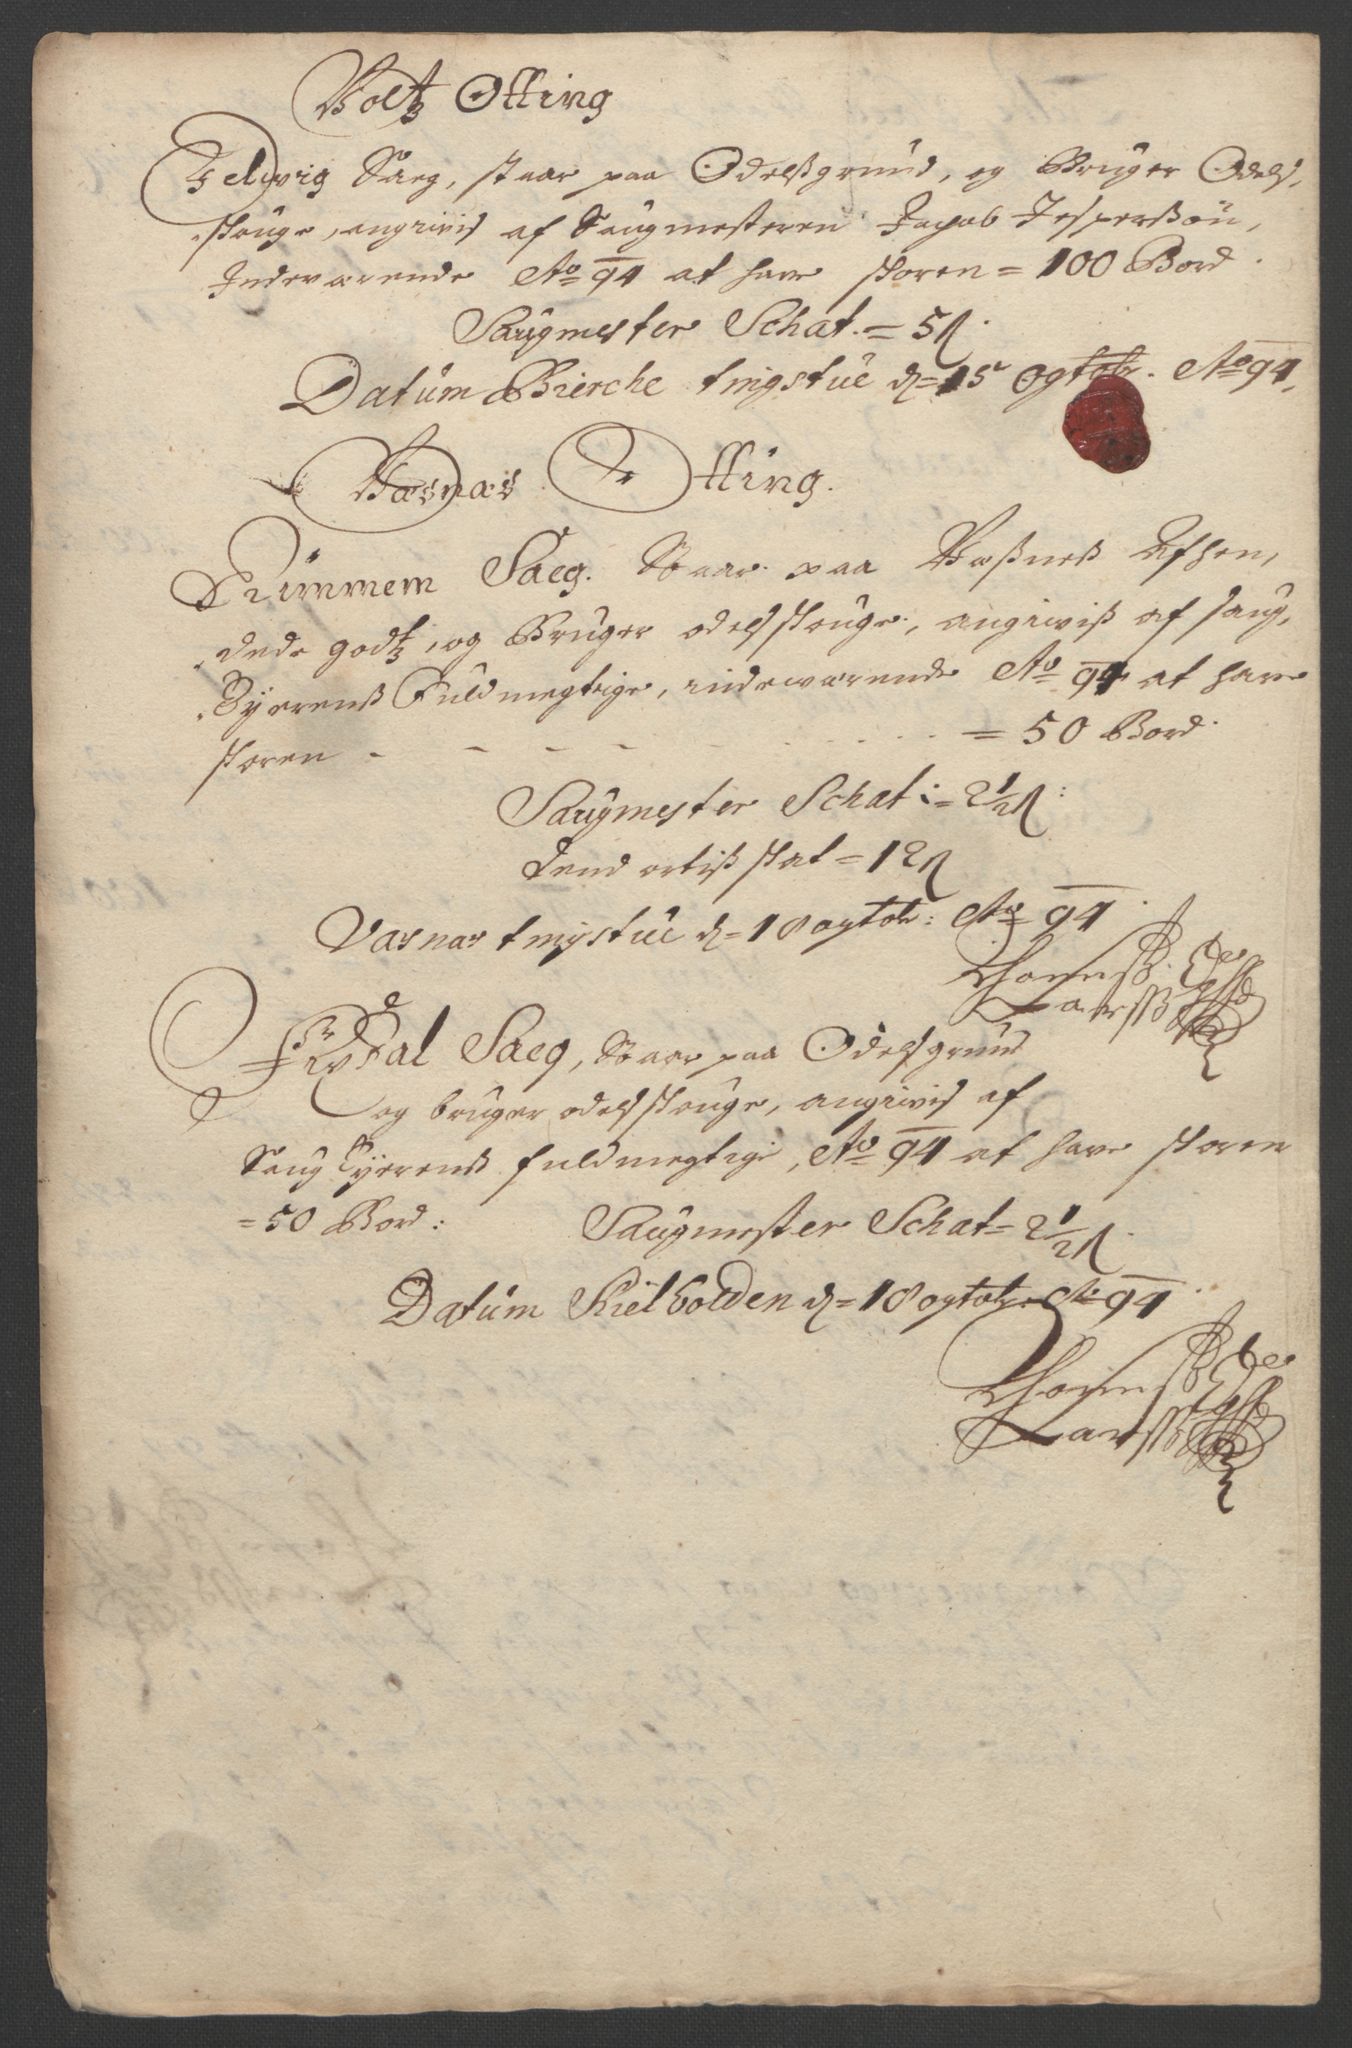 Voltz Otting
Helwig Saeg, staar paa Odelßgrund, og Bruger Odels,
skouge, angiwis af Saugmesteren Jacob Jesperßøn,
Indewærende Ao 94 at have skoren = 100 Bord.
Saugmester Schat. = 5ß.
Datum Bierche tingstue d = 15 ogtobr. Ao 94,
Wæsnæs Otting.
Saeg. Staar paa Wæßneß
dede godtz, og Bruger odelsskouge, angiwiß af saug,
Eyerenß Fuldmegtige, indewærende Ao 94 at have
skoren - - - - = 50 Bord.
Saugmester Schat := 2½ß:
Tend skat = 12ß
Væsnæs tingstue d = 18 ogtobr: Ao 94.
Larsß
dal Saeg, Staar paa Odelsgrund
og bruger odelsskouge, angiwis af
Saug Eyerenß fuldmegtige, Ao 94 at have skoren
= 50 Bord: Saugmester Schat = 2½ß.
Datum Kielbolden d = 18 ogtobr. Ao 94.
Larsß